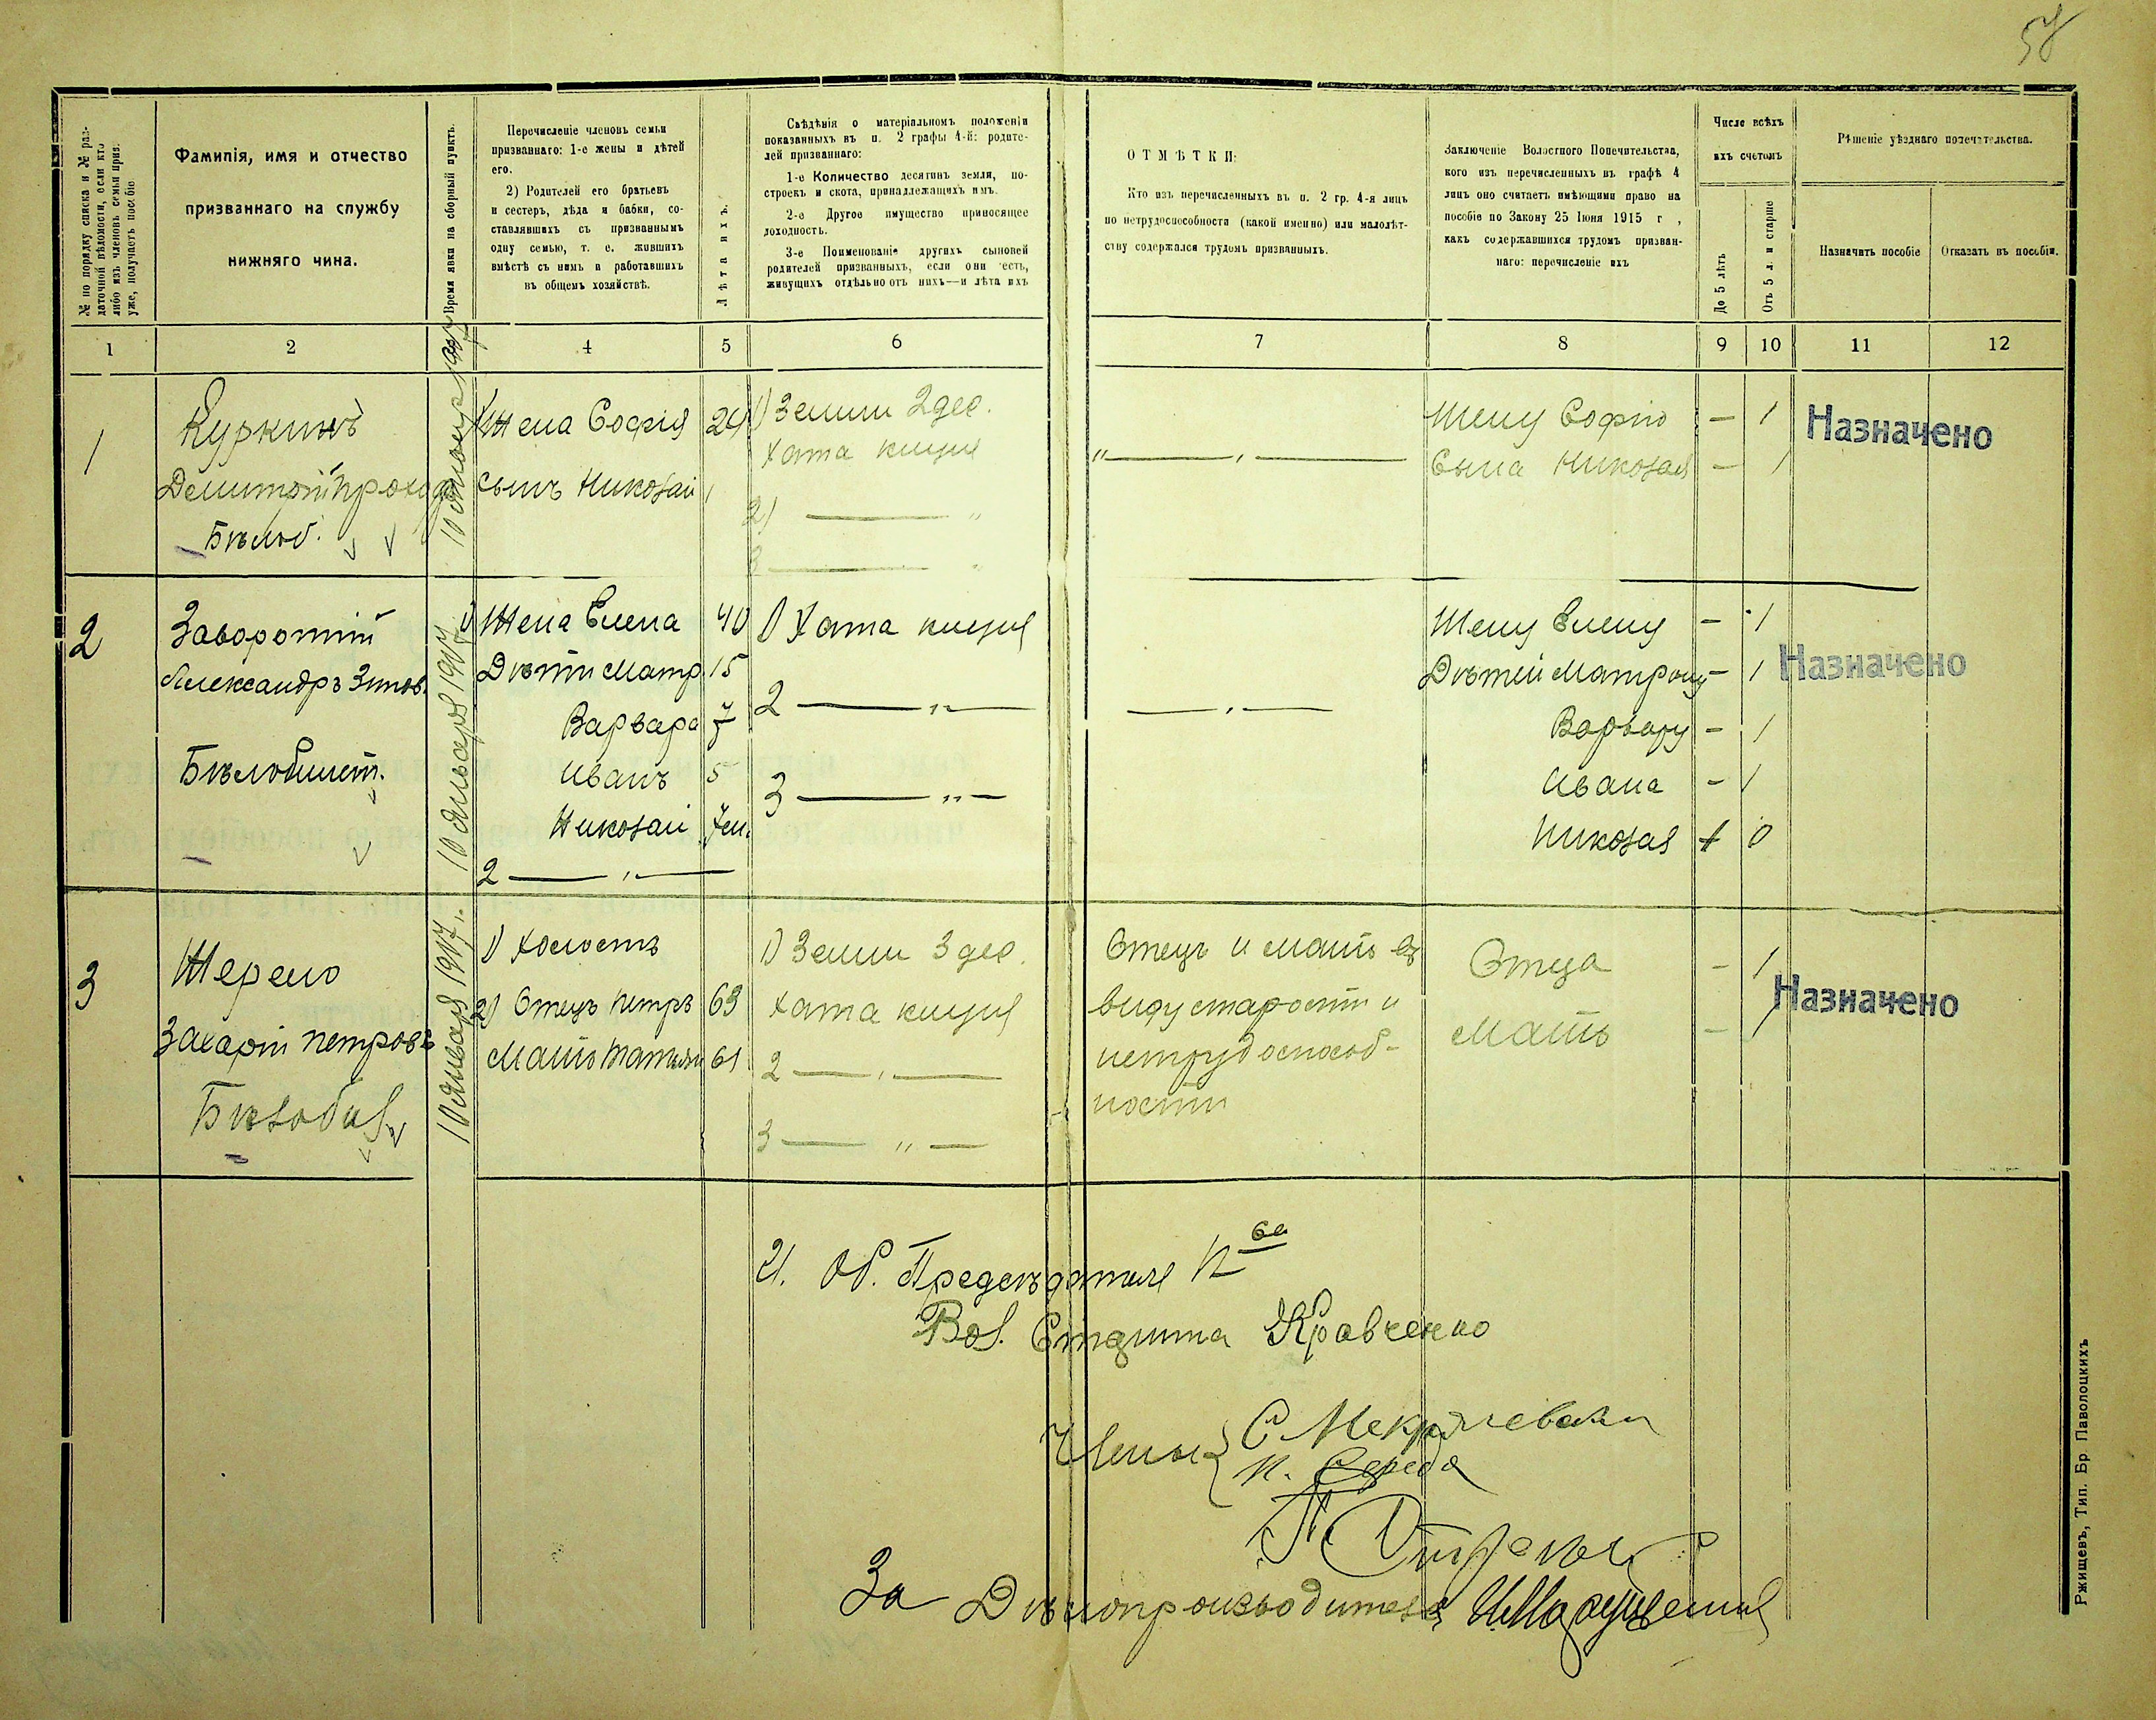 58
№ по порядку списка и № раз-
даточной вѣдомости, если кто
либо изъ членовъ семьи приз.
уже, получаетъ пособіе
Фамилія, имя и отчество
призваннаго на службу
нижняго чина.
Время явки на сборный пунктъ.
Перечисленіе членовъ семьи
призваннаго: 1-е жены и дѣтей
его.
2) Родителей его братьевъ
и сестеръ, дѣда и бабки, со-
ставлявшихъ съ призваннымъ
одну семью, т. е. жившихъ
вмѣстѣ съ нимъ и работавшихъ
въ общемъ хозяйствѣ.
Лѣта ихъ.
Свѣдѣнія о матеріальномъ положеніи
показанныхъ въ п. 2 графы 4-й: родите-
лей призваннаго:
1-е Количество десятинъ земли, по-
строекъ и скота, принадлежащихъ имъ.
2-е Другое имущество приносящее
доходность.
3-е Поименованіе другихъ сыновей
родителей призванныхъ, если они есть,
живущихъ отдѣльно отъ нихъ—и лѣта ихъ
ОТМѢТКИ:
Кто изъ перечисленныхъ въ п. 2 гр. 4-я лицъ
по нетрудоспособности (какой именно) или малолѣт-
ству содержался трудомъ призванныхъ.
Заключеніе Волостного Попечительства,
кого изъ перечисленныхъ въ графѣ 4
лицъ оно считаетъ имѣющими право на
пособіе по Закону 25 Іюня 1915 г ,
какъ содержавшихся трудомъ призван-
наго: перечисленіе ихъ
Число всѣхъ
ихъ счетомъ
До 5 лѣтъ
Отъ 5 л. и старше
Рѣшеніе уѣзднаго попечительства.
Назначить пособіе
Отказать въ пособіи.
1 2 4 5 6 7 8 9 10 11 12
1
Куркинъ
Бѣлоб.
10 Января 1917
1) Жена Софія 24
сынъ Николай 1
1) Земли 2 дес.
хата кущія
2) — "
3 — "
" — " —
Жену Софію — 1
Сына Николая — 1
Назначено
2
Заворотній
Александръ Зинов.
Бѣлобилет.
10 Января 1917 г.
1) Жена Елена 40
Дѣти Матр. 15
Варвара 7
Иванъ 5
Николай 7 м.
2 — " —
1) Хата кущія
2 — " —
3 — " —
— " —
Жену Елену — 1
Дѣтей Матрону — 1
Варвару — 1
Ивана — 1
Николая 1 0
Назначено
3
Жерело
Захарій Петровъ
Бѣлобил
10 Января 1917 г.
1) Холостъ
2) Отецъ Петръ 63
Мать Татьян 61
1) Земли 3 дес.
хата кущія
2 — " —
3 — " —
Отецъ и мать въ
виду старости и
нетрудоспособ-
ности
Отца — 1
Мать — 1
Назначено
И. Об. Предсѣдателя П-ва
Вол. Старшина Кравченко
Члены
П. Середа
За Дѣлопроизводителя
Ржищевъ, Тип. Бр Паволоцкихъ